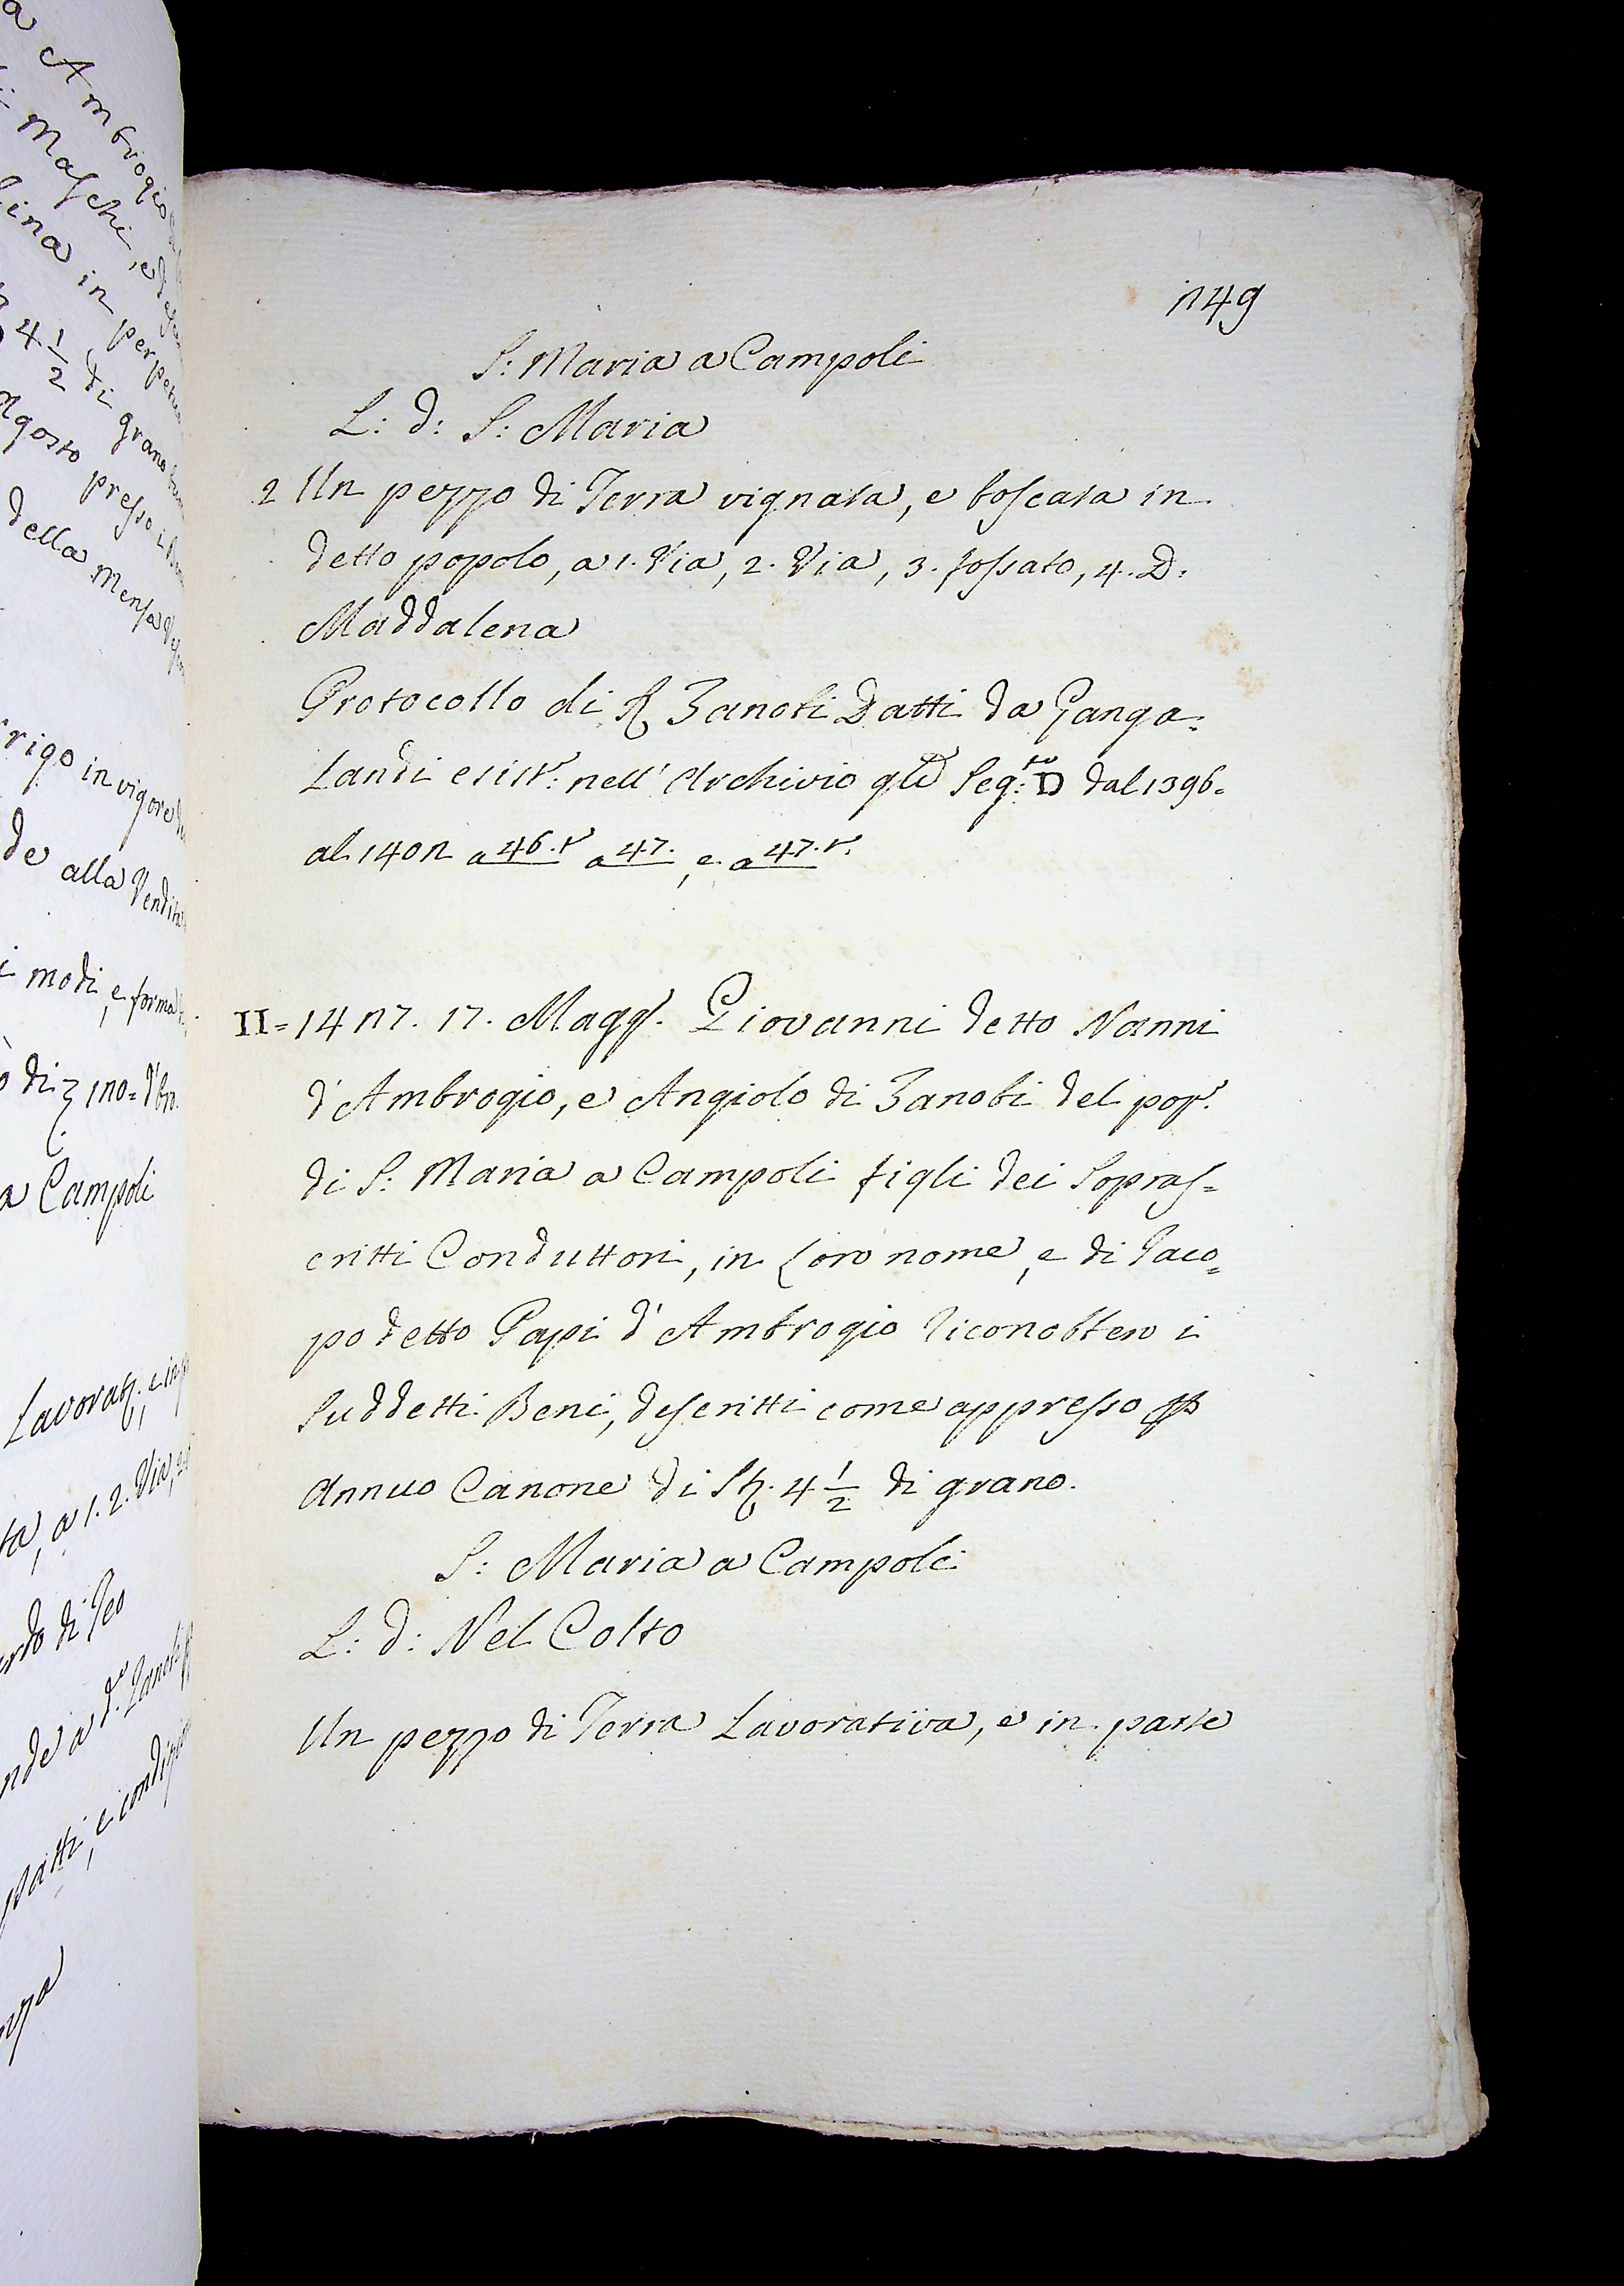 a Ambrogio
Maschi, e
lina in perpetuo
4 1/2 di grano
Agosto presso i
della Mensa
1149
S: Maria a Campoli
L: d: S: Maria
2 Un pezzo di Terra vignata, e boscata in
detto popolo, a 1. Via, 2. Via, 3. fossato, 4. D.
Maddalena
Protocollo di S Zanobi Datti da Ganga=
Landi esist: nell' Archivio gle Seg:to D dal 1396=
al 1402 a 46.t a 47., e a 47.t.
II=1427. 17. Magg. Giovanni detto Nanni
d'Ambrogio, e Angiolo di Zanobi del pop.
di S: Maria a Campoli figli dei Sopras=
critti Conduttori, in Loro nome, e di Jaco=
po detto Papi d'Ambrogio Riconobbero i
Suddetti Beni, descritti come appresso p
Annuo Canone di St. 4 1/2 di grano.
S: Maria a Campoli
L: d: Nel Colto
Un pezzo di Terra Lavorativa, e in parte
rigo in vigore
de alla Vendita
i modi, e forma
a Campoli
Lavorat: e in
ta, a 1. 2. Via,
di Teo
a d. Zanobi
patti, e condizio